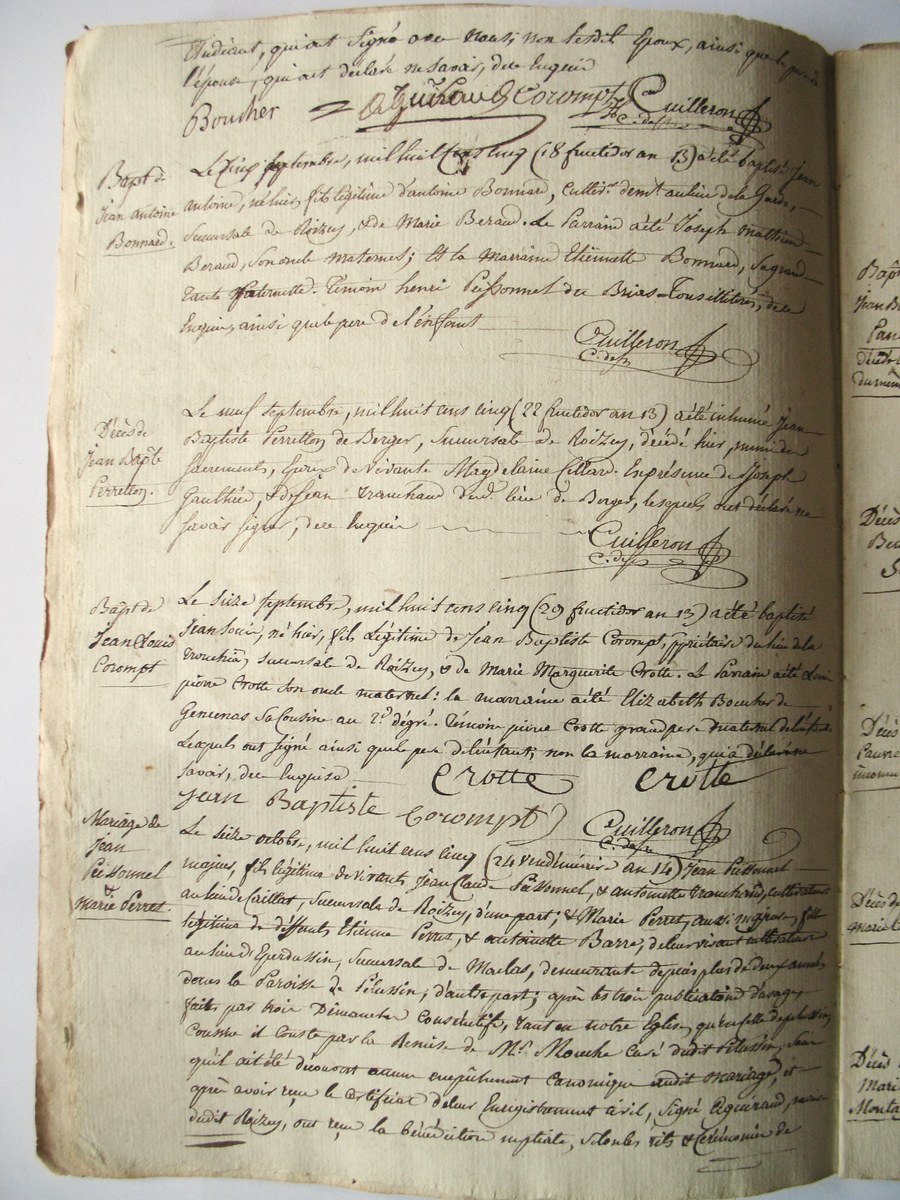 qui ont signé avec nous, non lesdits Epoux, ainsi que le père de
l'épouse, qui ont déclaré ne savoir, de ce enquis
Boucher = Aguiraud Corompt Cuilleron
C. des.
Bapt. de
Jean Antoine
Bonnard.
Le cinq septembre, mil huit cens cinq (18 fructidor an 13) a été baptisé Jean
antoine, né hier, fils légitime d'antoine Bonnard, cultivr. demt. au lieu de la Garde,
Sucursale de Roizey, & de Marie Beraud. Le Parrain a été Joseph Mathieu
Beraud, son oncle maternel; Et la Marraine Etiennette Bonnard, sa grand
tante paternelle. Témoin henri Peissonnel du Brias. Tous illitérés, de ce
Enquis, ainsi que le pere de l'enfant
Cuilleron
C. des.
Décès de
Jean Bapte
Perretton.
Le neuf septembre, mil huit cens cinq (22 fructidor an 13) a été inhumé Jean
Baptiste Perretton de Berger, Sucursale de Roizey, décédé hier, muni des
sacremens, Epoux de vivante Magdelaine Cellard. En présence de Joseph
Gauthier, & de Jean Tranchand dud. lieu de Berger, lesquels ont déclaré ne
savoir signer, de ce Enquis
Cuilleron
C. des.
Bapt de
Jean Louis
Corompt
Le seize septembre, mil huit cens cinq (29 fructidor an 13) a été baptisé
Jean Louis, né hier, fils Légitime de Jean Baptiste Corompt, propriétaire du lieu de la
Sucursale de Roizey, & de Marie Marguerite Crotte. Le Parrain a été Louis
pierre Crotte son oncle maternel: la marraine a été Elizabeth Boucher de
Genevas sa Cousine au 2d. dégré. Témoin pierre Crotte grand pere maternel de l'enfant
Lesquels ont signé ainsi que le pere de l'enfant; non la marraine, qui a déclaré ne
savoir, de ce Enquise Crotte Crotte
jean Baptiste Corompt Cuilleron
C. des.
Mariage de
Jean
Peissonnel
&
Marie Perret.
Le seize octobre, mil huit cens cinq (24 vendémiaire an 14) Jean Peissonnel
majeur, fils légitime de vivants Jean Claude Peissonnel, & antoinette Tranchand, cultivateurs
au lieu de Caillat, Sucursale de Roizey, d'une part; & Marie Perret, aussi majeure, fille
légitime de déffunts Etienne Perret, & antoinette Barre, de leur vivant cultivateurs
au lieu d'Eperdussin, Sucursale de Maclas, demeurante depuis plus de deux années
dans la Paroisse de Pélussin, d'autre part; après les trois publications d'usage
faites par trois Dimanches Consécutifs, tant en notre Eglise, qu'en celle de pélussin,
comme il conste par la Remise de Mr. Mouche Curé dudit Pélussin, sans
qu'il ait été découvert aucun empêchement canonique audit mariage, et
après avoir reçu le certificat de leur Enregistrement civil, signé Aguiraud, maire
dudit Roizey, ont reçu la bénédiction nuptiale, selon les rits & Cérémonies de
Bapt
Jean B
décédé
du mêm
Décès
Décès
Pauvre
inconnu
Décès de
marie
Décès
Marie
Monta